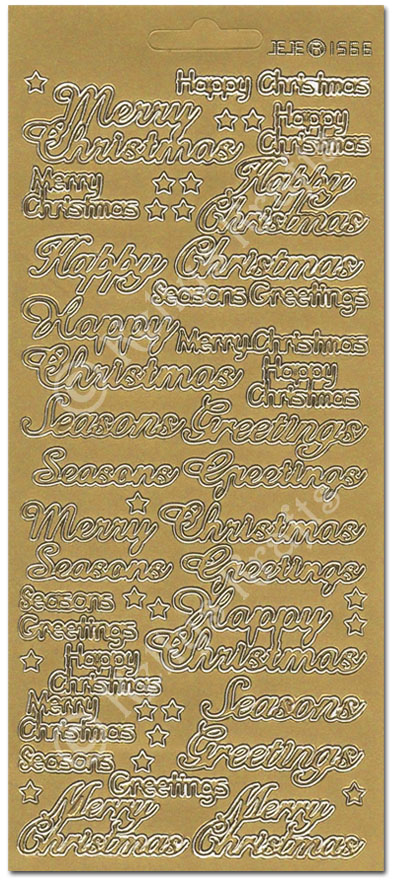 JEJE ® 1566
Happy Christmas
Merry
Christmas
Happy
Christmas
Merry
Christmas
Happy
Christmas
Happy Christmas
Seasons Greetings
Happy
Christmas
Merry Christmas
Happy
Christmas
Seasons Greetings
Seasons Greetings
Merry Christmas
Seasons Greetings
Seasons
Greetings
Happy
Christmas
Happy
Christmas
Merry
Christmas
Seasons
Greetings
Seasons
Greetings
Merry
Christmas
Merry
Christmas